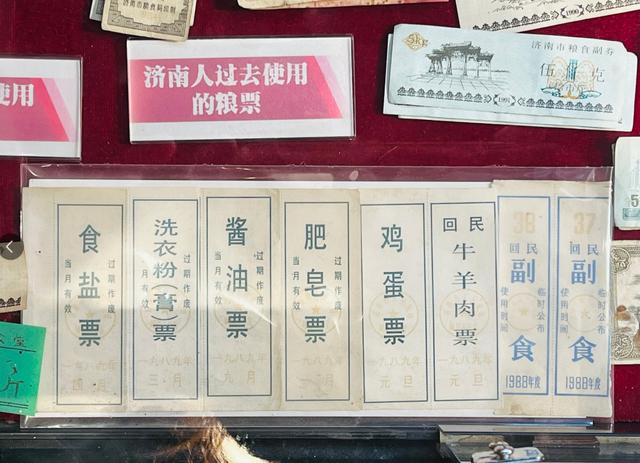 济南市粮食局制
1990
使用
济南人过去使用
的粮票
济南市粮食副券
伍 克
1991
食盐票
当月有效
过期作废
一九八九年
洗衣粉(膏)票
当月有效
过期作废
一九八九年
三月
酱油票
当月有效
过期作废
一九八九年
九月
肥皂票
当月有效
过期作废
一九八九年
鸡蛋票
一九八九年
元旦
回民
牛羊肉票
一九八九年
元旦
38
回民
副食
使用时间
临时公布
1988年度
37
回民
副食
使用时间
临时公布
1988年度
斤
5